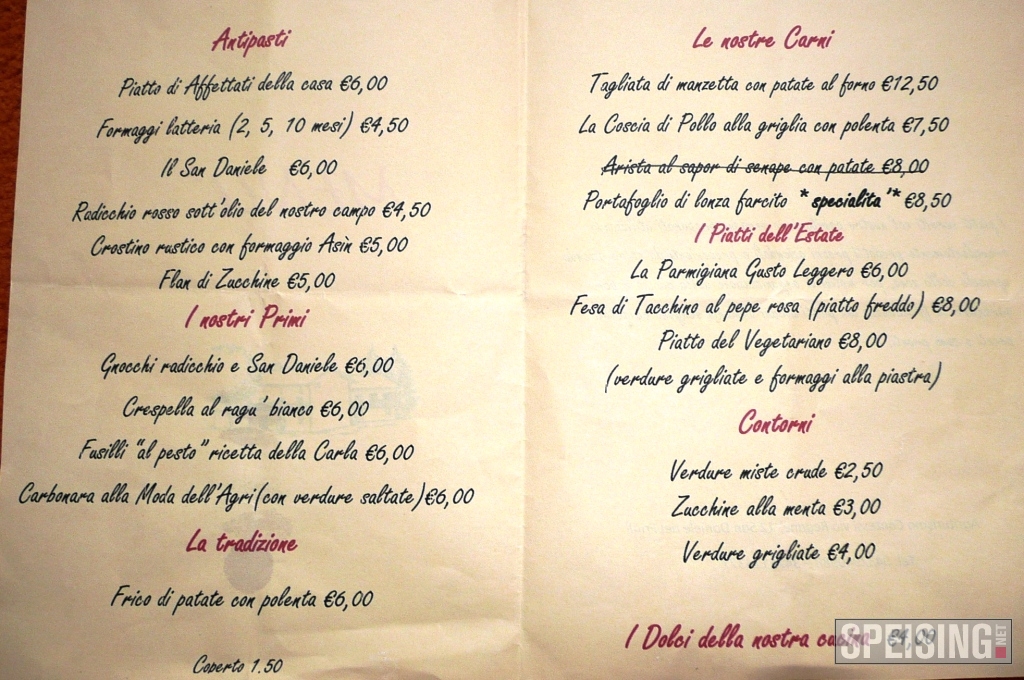 Antipasti
Piatto di Affettati della casa €6,00
Formaggi latteria (2, 5, 10 mesi) €4,50
Il San Daniele €6,00
Radicchio rosso sott'olio del nostro campo €4,50
Crostino rustico con formaggio Asìn €5,00
Flan di Zucchine €5,00
I nostri Primi
Gnocchi radicchio e San Daniele €6,00
Crespella al ragu' bianco €6,00
Fusilli "al pesto" ricetta della Carla €6,00
Carbonara alla Moda dell'Agri(con verdure saltate)€6,00
La tradizione
Frico di patate con polenta €6,00
Coperto 1.50
Le nostre Carni
Tagliata di manzetta con patate al forno €12,50
La Coscia di Pollo alla griglia con polenta €7,50
Arista al sapor di senape con patate €8,00
Portafoglio di lonza farcito *specialita'* €8,50
I Piatti dell'Estate
La Parmigiana Gusto Leggero €6,00
Fesa di Tacchino al pepe rosa (piatto freddo) €8,00
Piatto del Vegetariano €8,00
(verdure grigliate e formaggi alla piastra)
Contorni
Verdure miste crude €2,50
Zucchine alla menta €3,00
Verdure grigliate €4,00
I Dolci della nostra cucina €4,00
SPEISING.NET